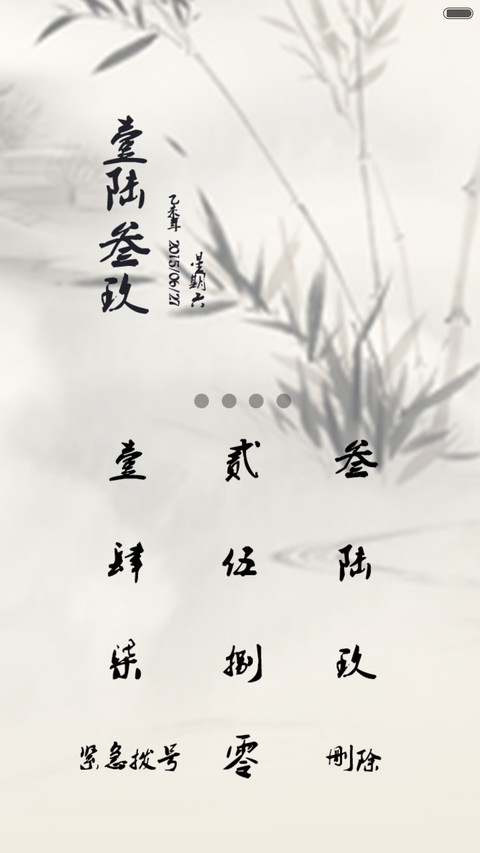 壹陆叁玖
乙未年 2015/06/27
星期六
壹 贰 叁
肆 伍 陆
柒 捌 玖
紧急拨号 零 删除